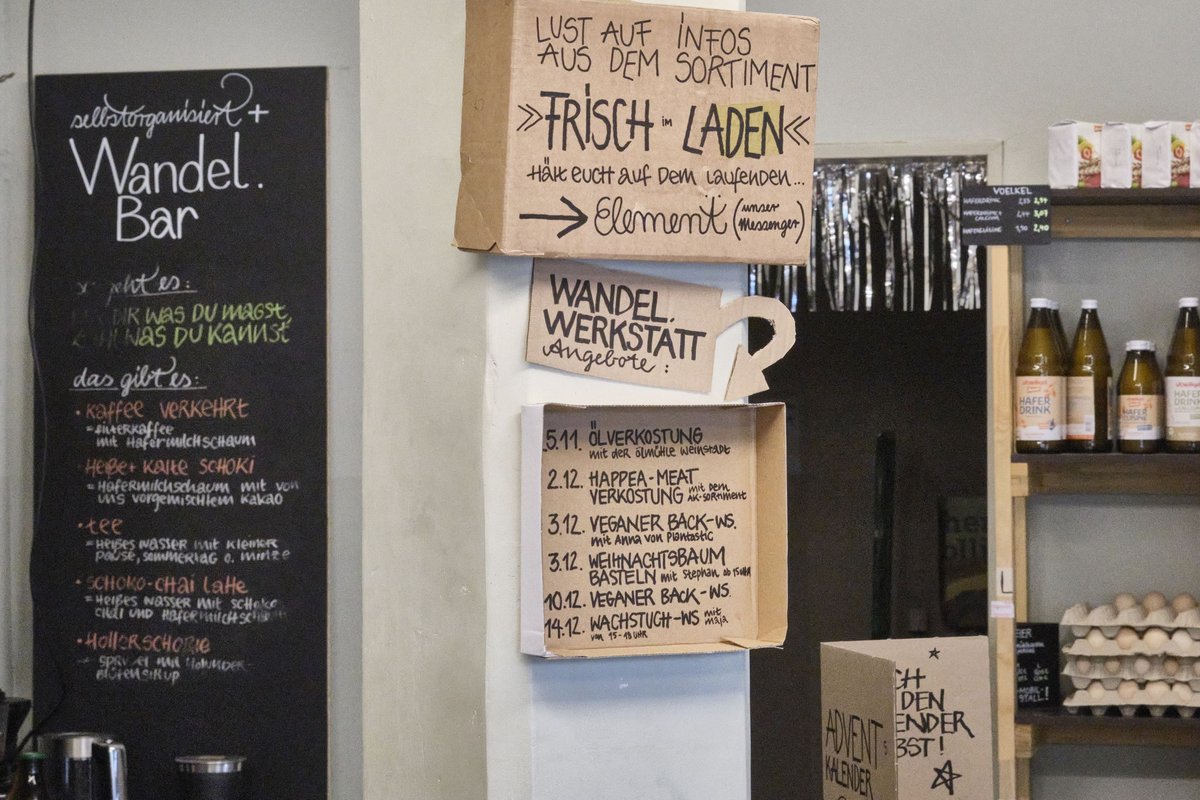 selbstorganisiert +
Wandel.
Bar
geht es:
WAS DU MAGST
WAS DU KANNST
das gibt es:
• KAFFEE VERKEHRT
= FILTERKAFFEE
MIT HAFERMILCHSCHAUM
• HEIßE + KALTE SCHOKI
= HAFERMILCHSCHAUM MIT VON
UNS VORGEMISCHTEM KAKAO
• TEE
= HEIßES WASSER MIT KLEINER
PAUSE, SOMMERTAG O. MINZE
• SCHOKO-CHAI LATTE
= HEIßES WASSER MIT SCHOKO
CHAI UND HAFERMILCHSCHAUM
• HOLLERSCHORLE
SPRUDEL MIT HOLUNDER-
BLÜTENSIRUP
LUST AUF INFOS
AUS DEM SORTIMENT
»FRISCH im LADEN«
HÄLT EUCH AUF DEM LAUFENDEN...
→ Element (unser
Messenger)
WANDEL.
WERKSTATT
Angebote:
5.11. ÖLVERKOSTUNG
mit der ÖLMÜHLE WEINSTADT
2.12. HAPPEA-MEAT
VERKOSTUNG mit dem
AK-SORTIMENT
3.12. VEGANER BACK-WS.
mit Anna von Plantastic
3.12. WEIHNACHTSBAUM
BASTELN mit Stephan ab 15 UHR
10.12. VEGANER BACK-WS.
14.12. WACHSTUCH-WS mit
maja
von 15-18 UHR
VOELKEL
HAFERDRINK
2,40
HAFER
DRINK
HAFER
CUISINE
HAFER
DRINK
EIER
MOBIL-
STALL!
ADVENT
KALENDER
CH
DEN
ENDER
BST!